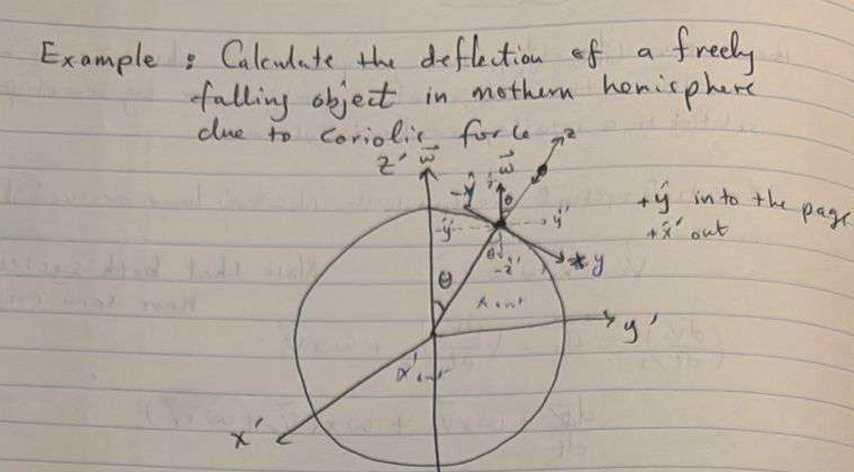 Example : Calculate the deflection of a freely
falling object in nothern hemisphere
due to coriolis force
z' ω⃗ ω⃗ z
-ŷ θ
+ŷ into the page
-y' y'
+x̂' out
θ -z' y
θ
y'
x'
x'